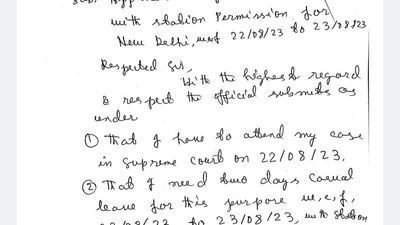 with station Permission for
New Delhi, w.e.f 22/08/23 to 23/08/23
Respected Sir,
With the highest regard
& respect the official submits as
under
① That I have to attend my case
in Supreme court on 22/08/23.
② That I need two days casual
leave for this purpose w.e.f.
to 23/08/23, with station